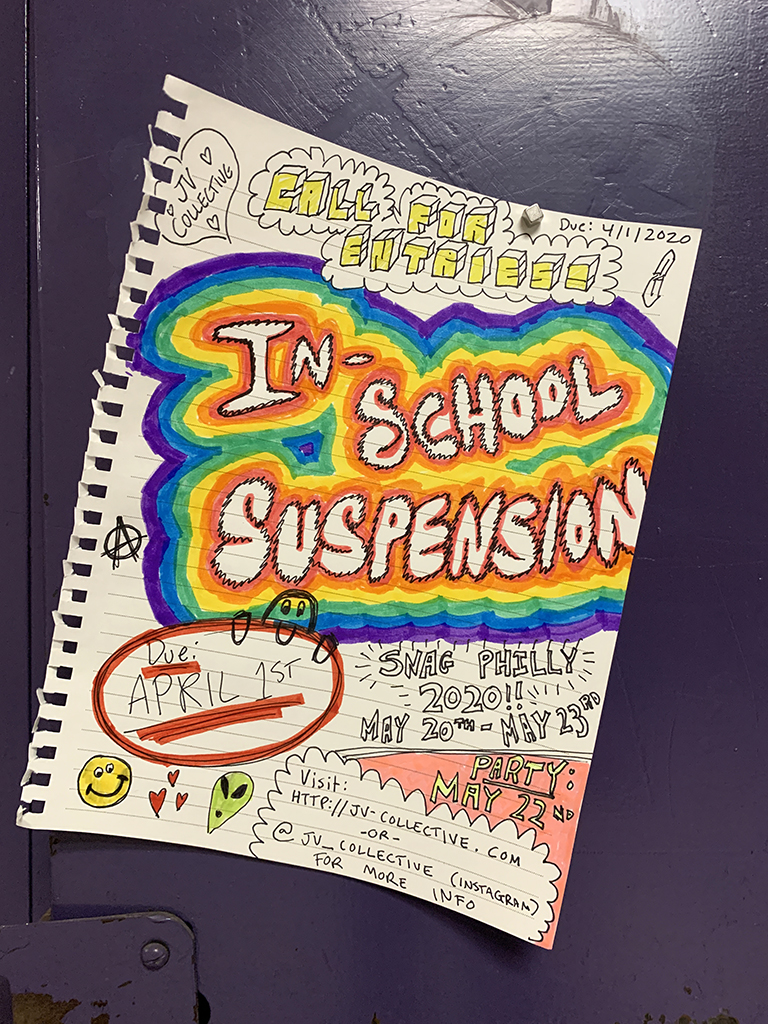 JV
COLLECTIVE
CALL FOR
ENTRIES!!
Due: 4/1/2020
IN-
SCHOOL
SUSPENSION
Due:
APRIL 1ST
SNAG PHILLY
2020!!
MAY 20TH - MAY 23RD
PARTY:
MAY 22ND
Visit:
HTTP://JV-COLLECTIVE.COM
-OR-
@JV_COLLECTIVE (INSTAGRAM)
FOR MORE INFO